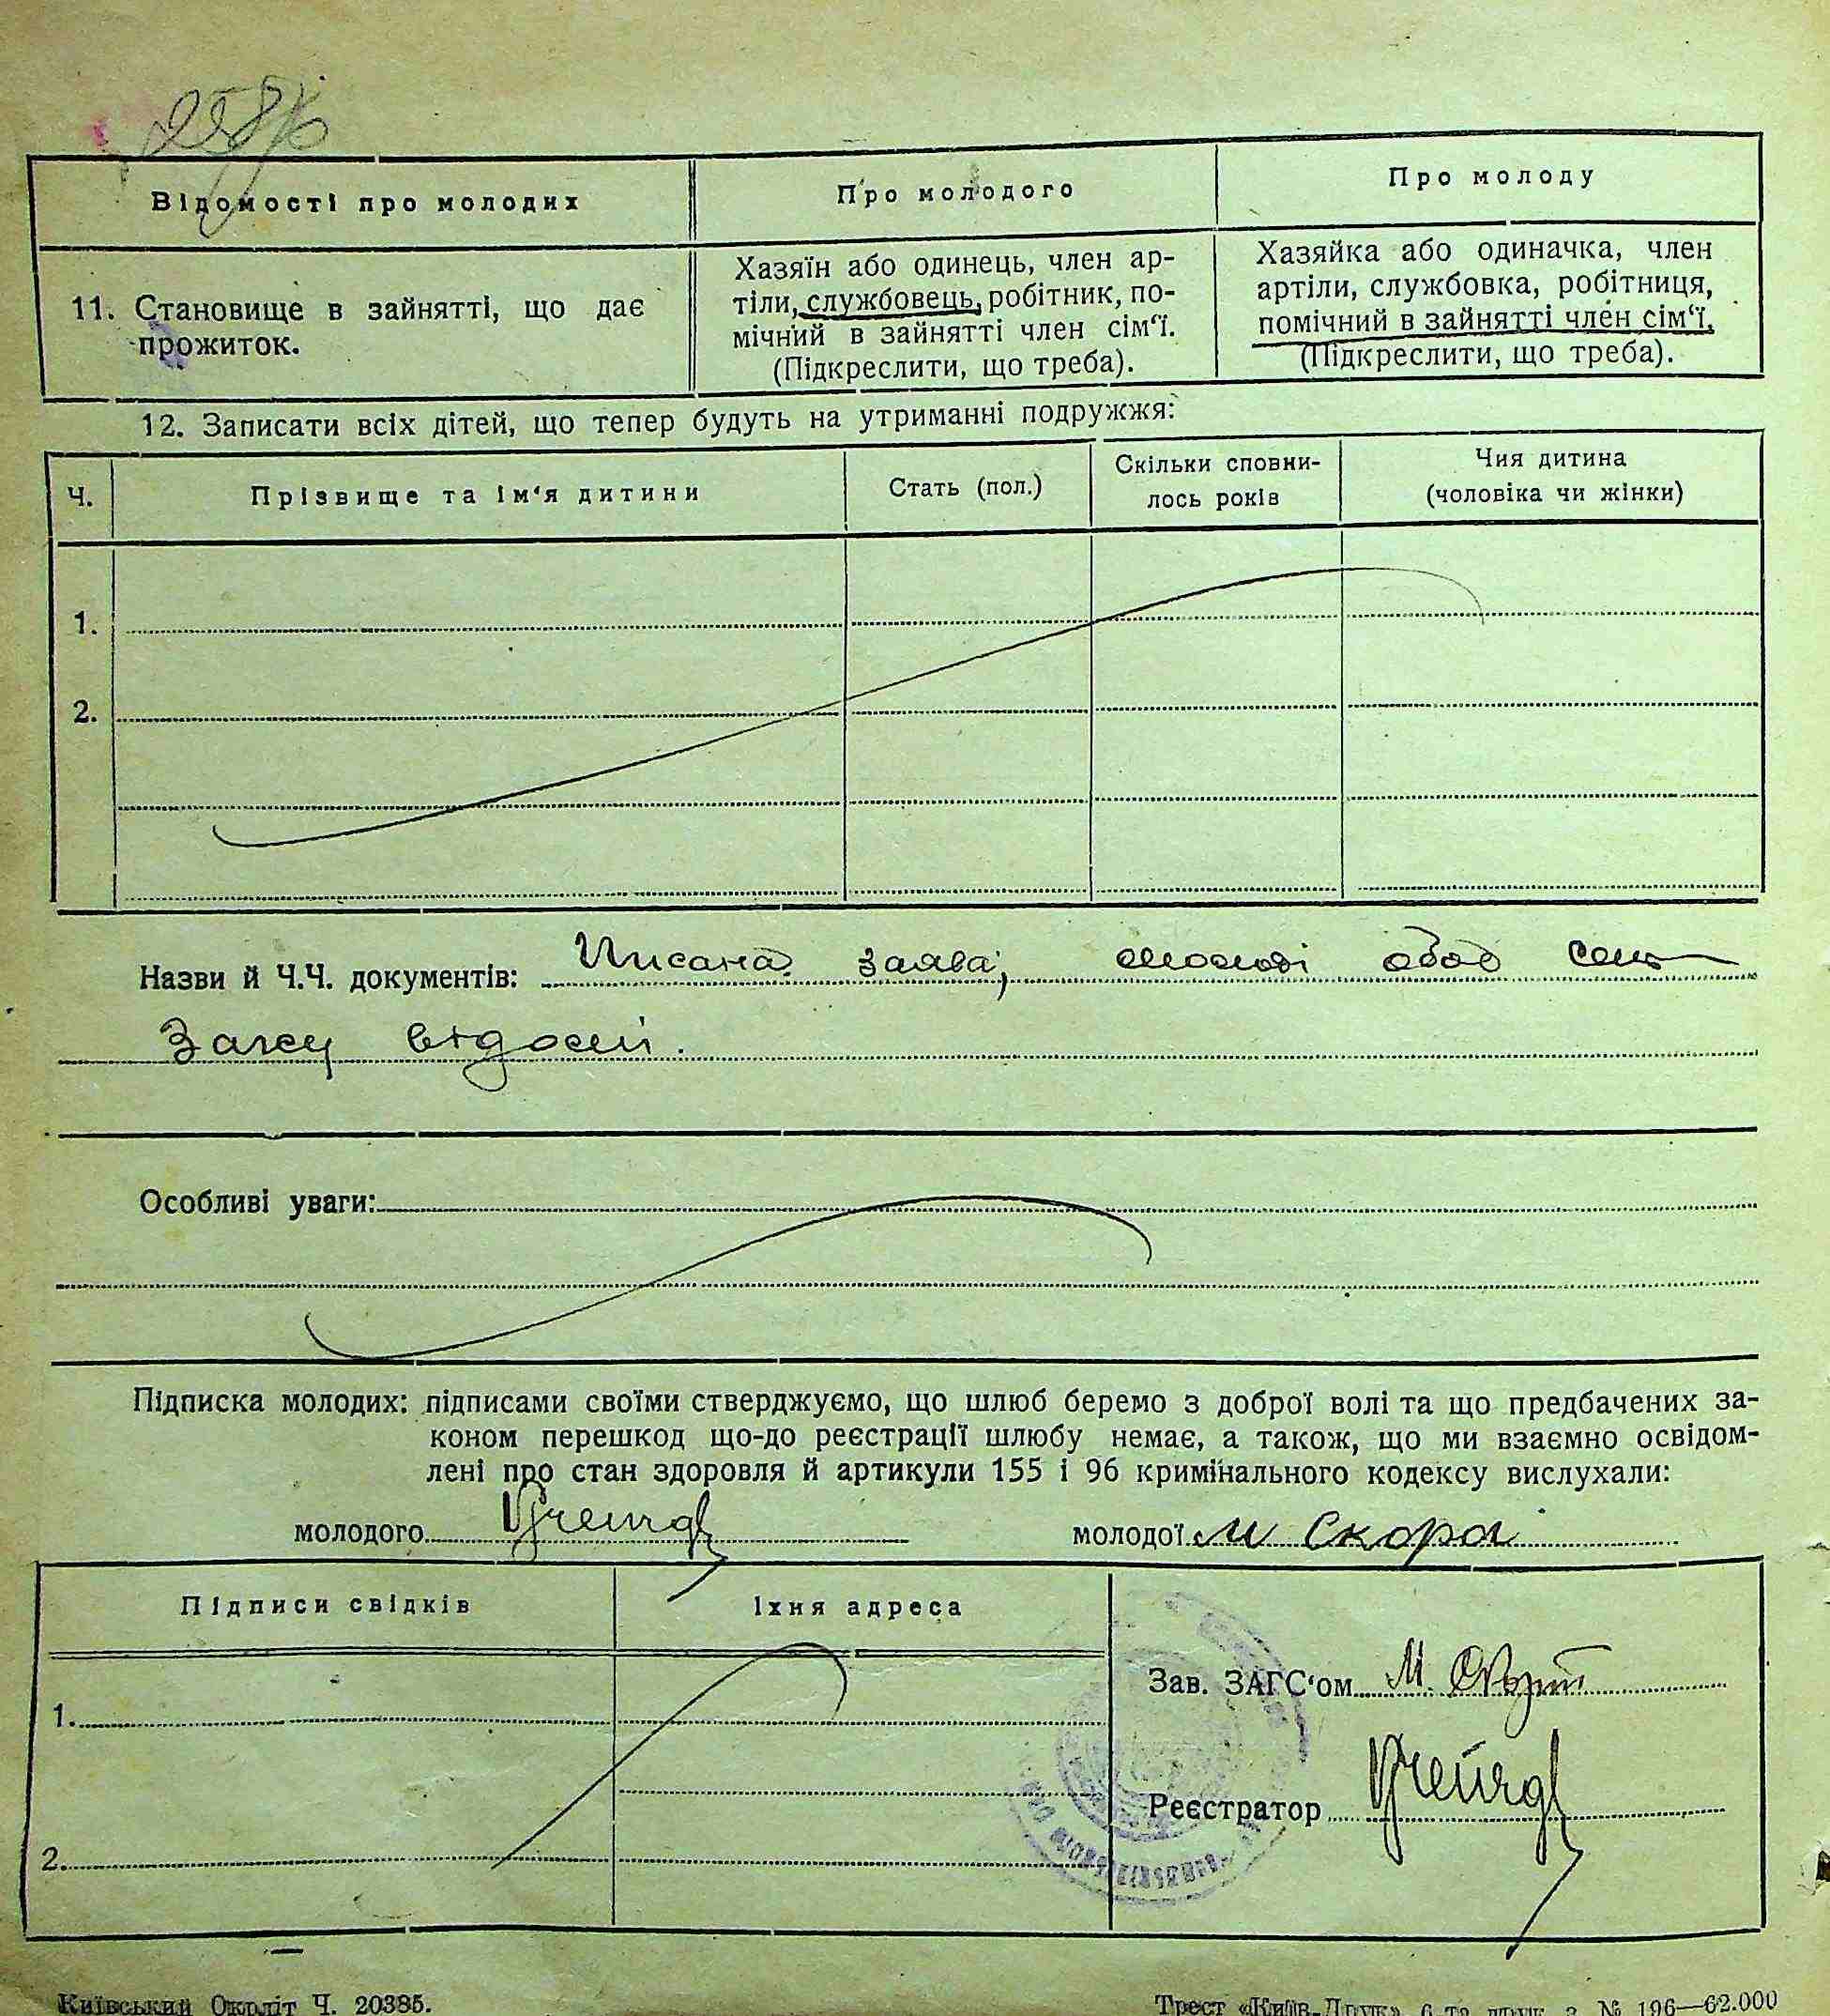 Відомості про молодих
Про молодого
Про молоду
11. Становище в зайнятті, що дає
прожиток.
Хазяїн або одинець, член ар-
тіли, службовець, робітник, по-
мічний в зайнятті член сім‘ї.
(Підкреслити, що треба).
Хазяйка або одиначка, член
артіли, службовка, робітниця,
помічний в зайнятті член сім‘ї.
(Підкреслити, що треба).
12. Записати всіх дітей, що тепер будуть на утриманні подружжя:
Ч.
Прізвище та ім‘я дитини
Стать (пол.)
Скільки сповни-
лось років
Чия дитина
(чоловіка чи жінки)
1.
2.
Назви й Ч.Ч. документів: Писана заява, молоді обоє
Загсу відомі.
Особливі уваги:
Підписка молодих: підписами своїми стверджуємо, що шлюб беремо з доброї волі та що предбачених за-
коном перешкод що-до реєстрації шлюбу немає, а також, що ми взаємно освідом-
лені про стан здоровля й артикули 155 і 96 кримінального кодексу вислухали:
молодого
молодої М Скора
Підписи свідків
Їхня адреса
1.
2.
Зав. ЗАГС‘ом М.
Реєстратор
Київський Окрліт Ч. 20385.
Трест «Київ-Друк» 6 та друк. з. № 196—62.000